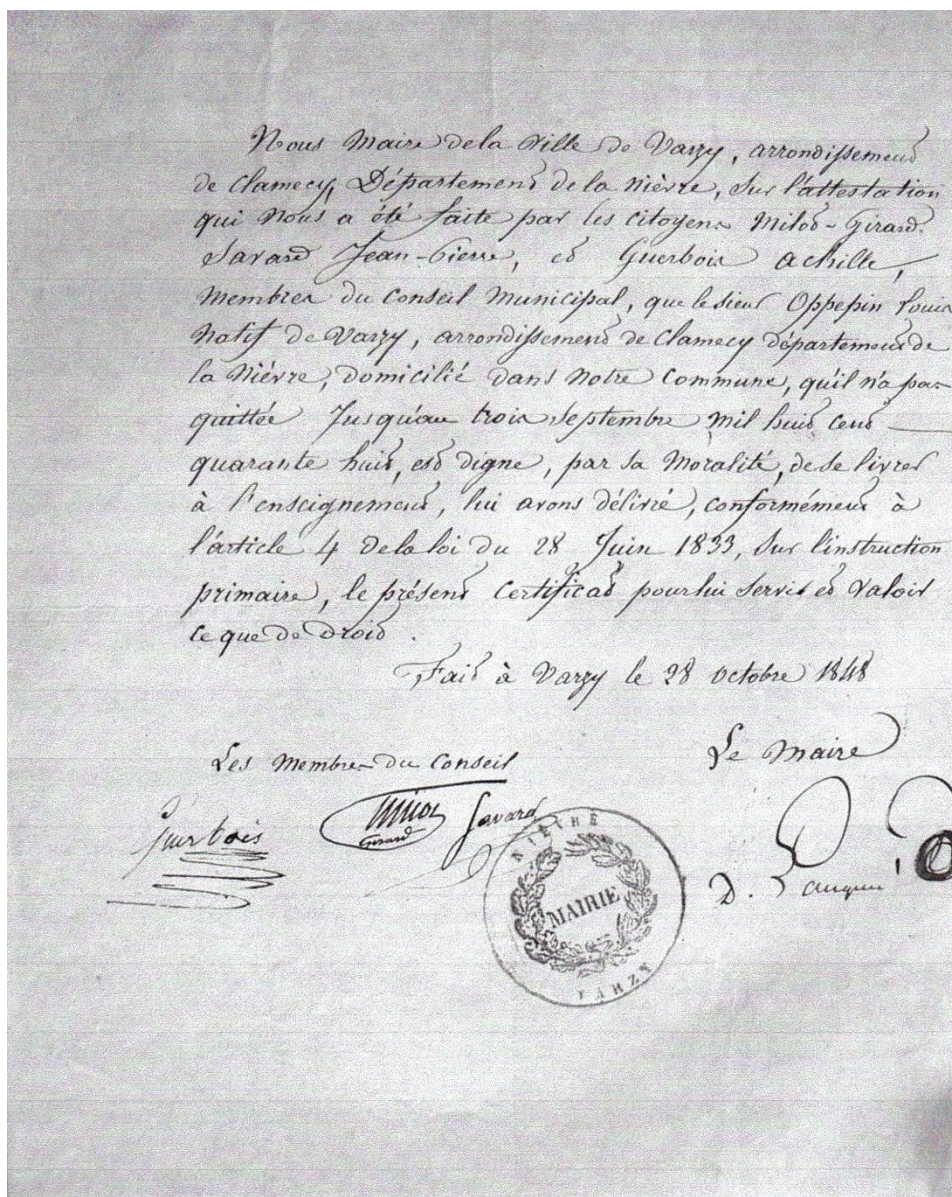 Nous Maire de la Ville de Varzy, arrondissement
de Clamecy, Département de la Nièvre, sur l'attestation
qui nous a été faite par les citoyens Milot-Girard
Savard Jean-Pierre, et Guerbois achille,
Membres du Conseil Municipal, que le sieur Oppepin Louis
Natif de Varzy, arrondissement de Clamecy département de
la Nièvre, domicilié dans notre commune, qu'il n'a pas
quittée Jusqu'au trois septembre mil huit cent
quarante huit, est digne, par sa Moralité, de se livrer
à l'enseignement, lui avons délivré, conformément à
l'article 4 de la loi du 28 Juin 1833, sur l'instruction
primaire, le présent Certificat pour lui servir et valoir
ce que de droit.
Fait à Varzy le 28 octobre 1848
Les Membres du Conseil
Le Maire
Guerbois
Milot
Girard
Savard
D.
NIÈVRE
MAIRIE
VARZY